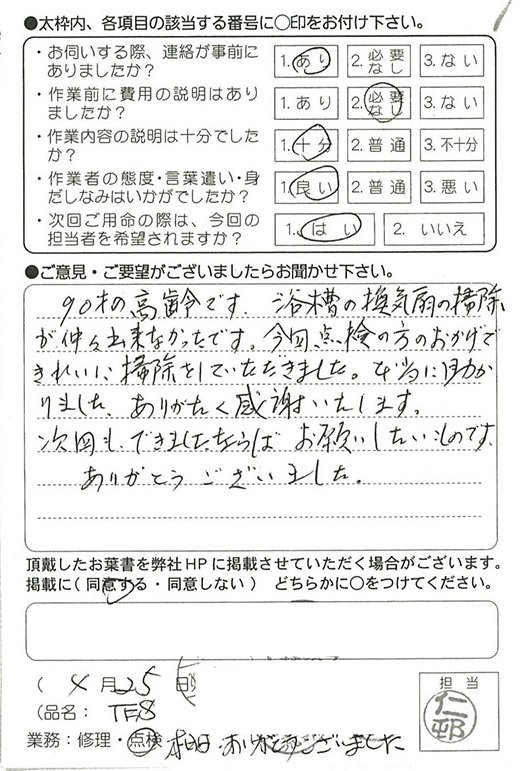 ●太枠内、各項目の該当する番号に○印をお付け下さい。
・お伺いする際、連絡が事前にありましたか？
1. あり 2. 必要なし 3. ない
・作業前に費用の説明はありましたか？
1. あり 2. 必要なし 3. ない
・作業内容の説明は十分でしたか？
1. 十分 2. 普通 3. 不十分
・作業者の態度・言葉遣い・身だしなみはいかがでしたか？
1. 良い 2. 普通 3. 悪い
・次回ご用命の際は、今回の担当者を希望されますか？
1. はい 2. いいえ
●ご意見・ご要望がございましたらお聞かせ下さい。
90才の高齢です。浴槽の換気扇の掃除
が仲々出来なかったです。今回点検の方のおかげで
きれいに掃除をしていただきました。本当に助か
りました。ありがたく感謝いたします。
次回も、できましたならば お願いしたいものです。
ありがとうございました。
頂戴したお葉書を弊社HPに掲載させていただく場合がございます。
掲載に（ 同意する・同意しない ） どちらかに○をつけてください。
( 4月25日
(品名： TES
担当
仁邨
業務：修理・点検 本日ありがとうございました